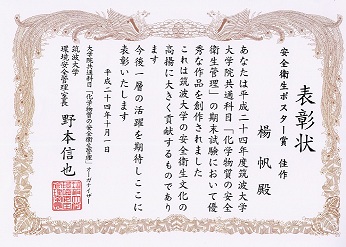 表彰状
安全衛生ポスター賞 佳作
楊帆 殿
あなたは平成二十四年度筑波大学
大学院共通科目「化学物質の安全
衛生管理」の期末試験において優
秀な作品を創作されました
これは筑波大学の安全衛生文化の
高揚に大きく貢献するものであり
ます
今後一層の活躍を期待しここに
表彰いたします
平成二十四年十月一日
大学院共通科目「化学物質の安全衛生管理」オーガナイザー
筑波大学
環境安全管理室長 野本信也